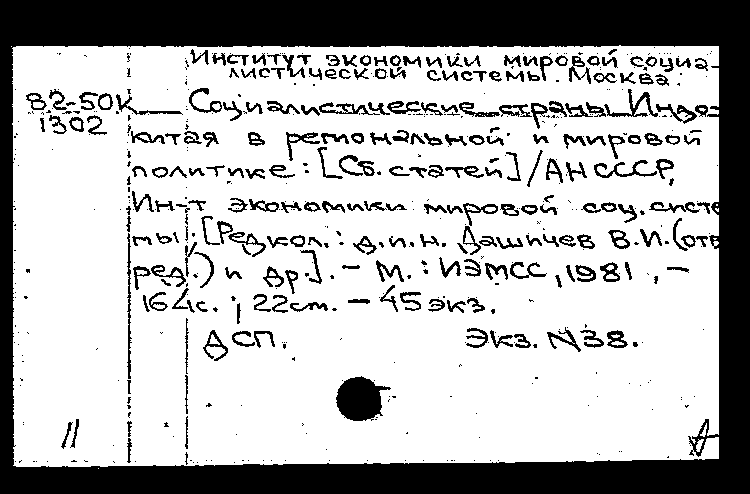 Институт экономики мировой социа-
листической системы. Москва.
82-50К Социалистические страны Индо-
1302
китая в региональной и мировой
политике: [Сб. статей] / АН СССР,
Ин-т экономики мировой соц. систе
мы; [Редкол.: д.и.н. Дашичев В.И. (отв
ред.) и др.]. - М.: ИЭМСС, 1981. -
164с.; 22см. - 45 экз.
ДСП. Экз. N38.
11